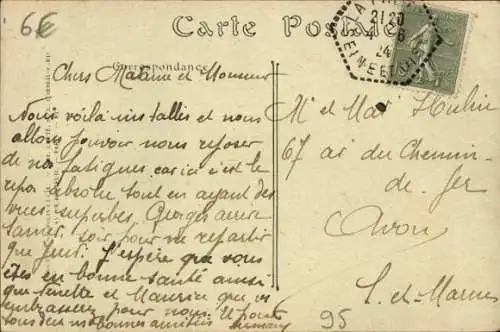 6€
Carte Postale
Correspondance
21 20
4 - 6
24
Chers Madame et Monsieur
Nous voilà installés et nous
allons pouvoir nous reposer
de nos fatigues car ici c'est le
repos absolu tout en ayant des
vues superbes, Georges arrive
samedi soir pour ne repartir
que Jeudi. J'espère que vous
êtes en bonne santé ainsi
que Ginette et Maurice que vs
embrasserez pour nous. et pour
tous deux nos bonnes amitiés
Mr et Me Hulin
67 av du Chemin-
de-fer
Avon
S. et-Marne
95